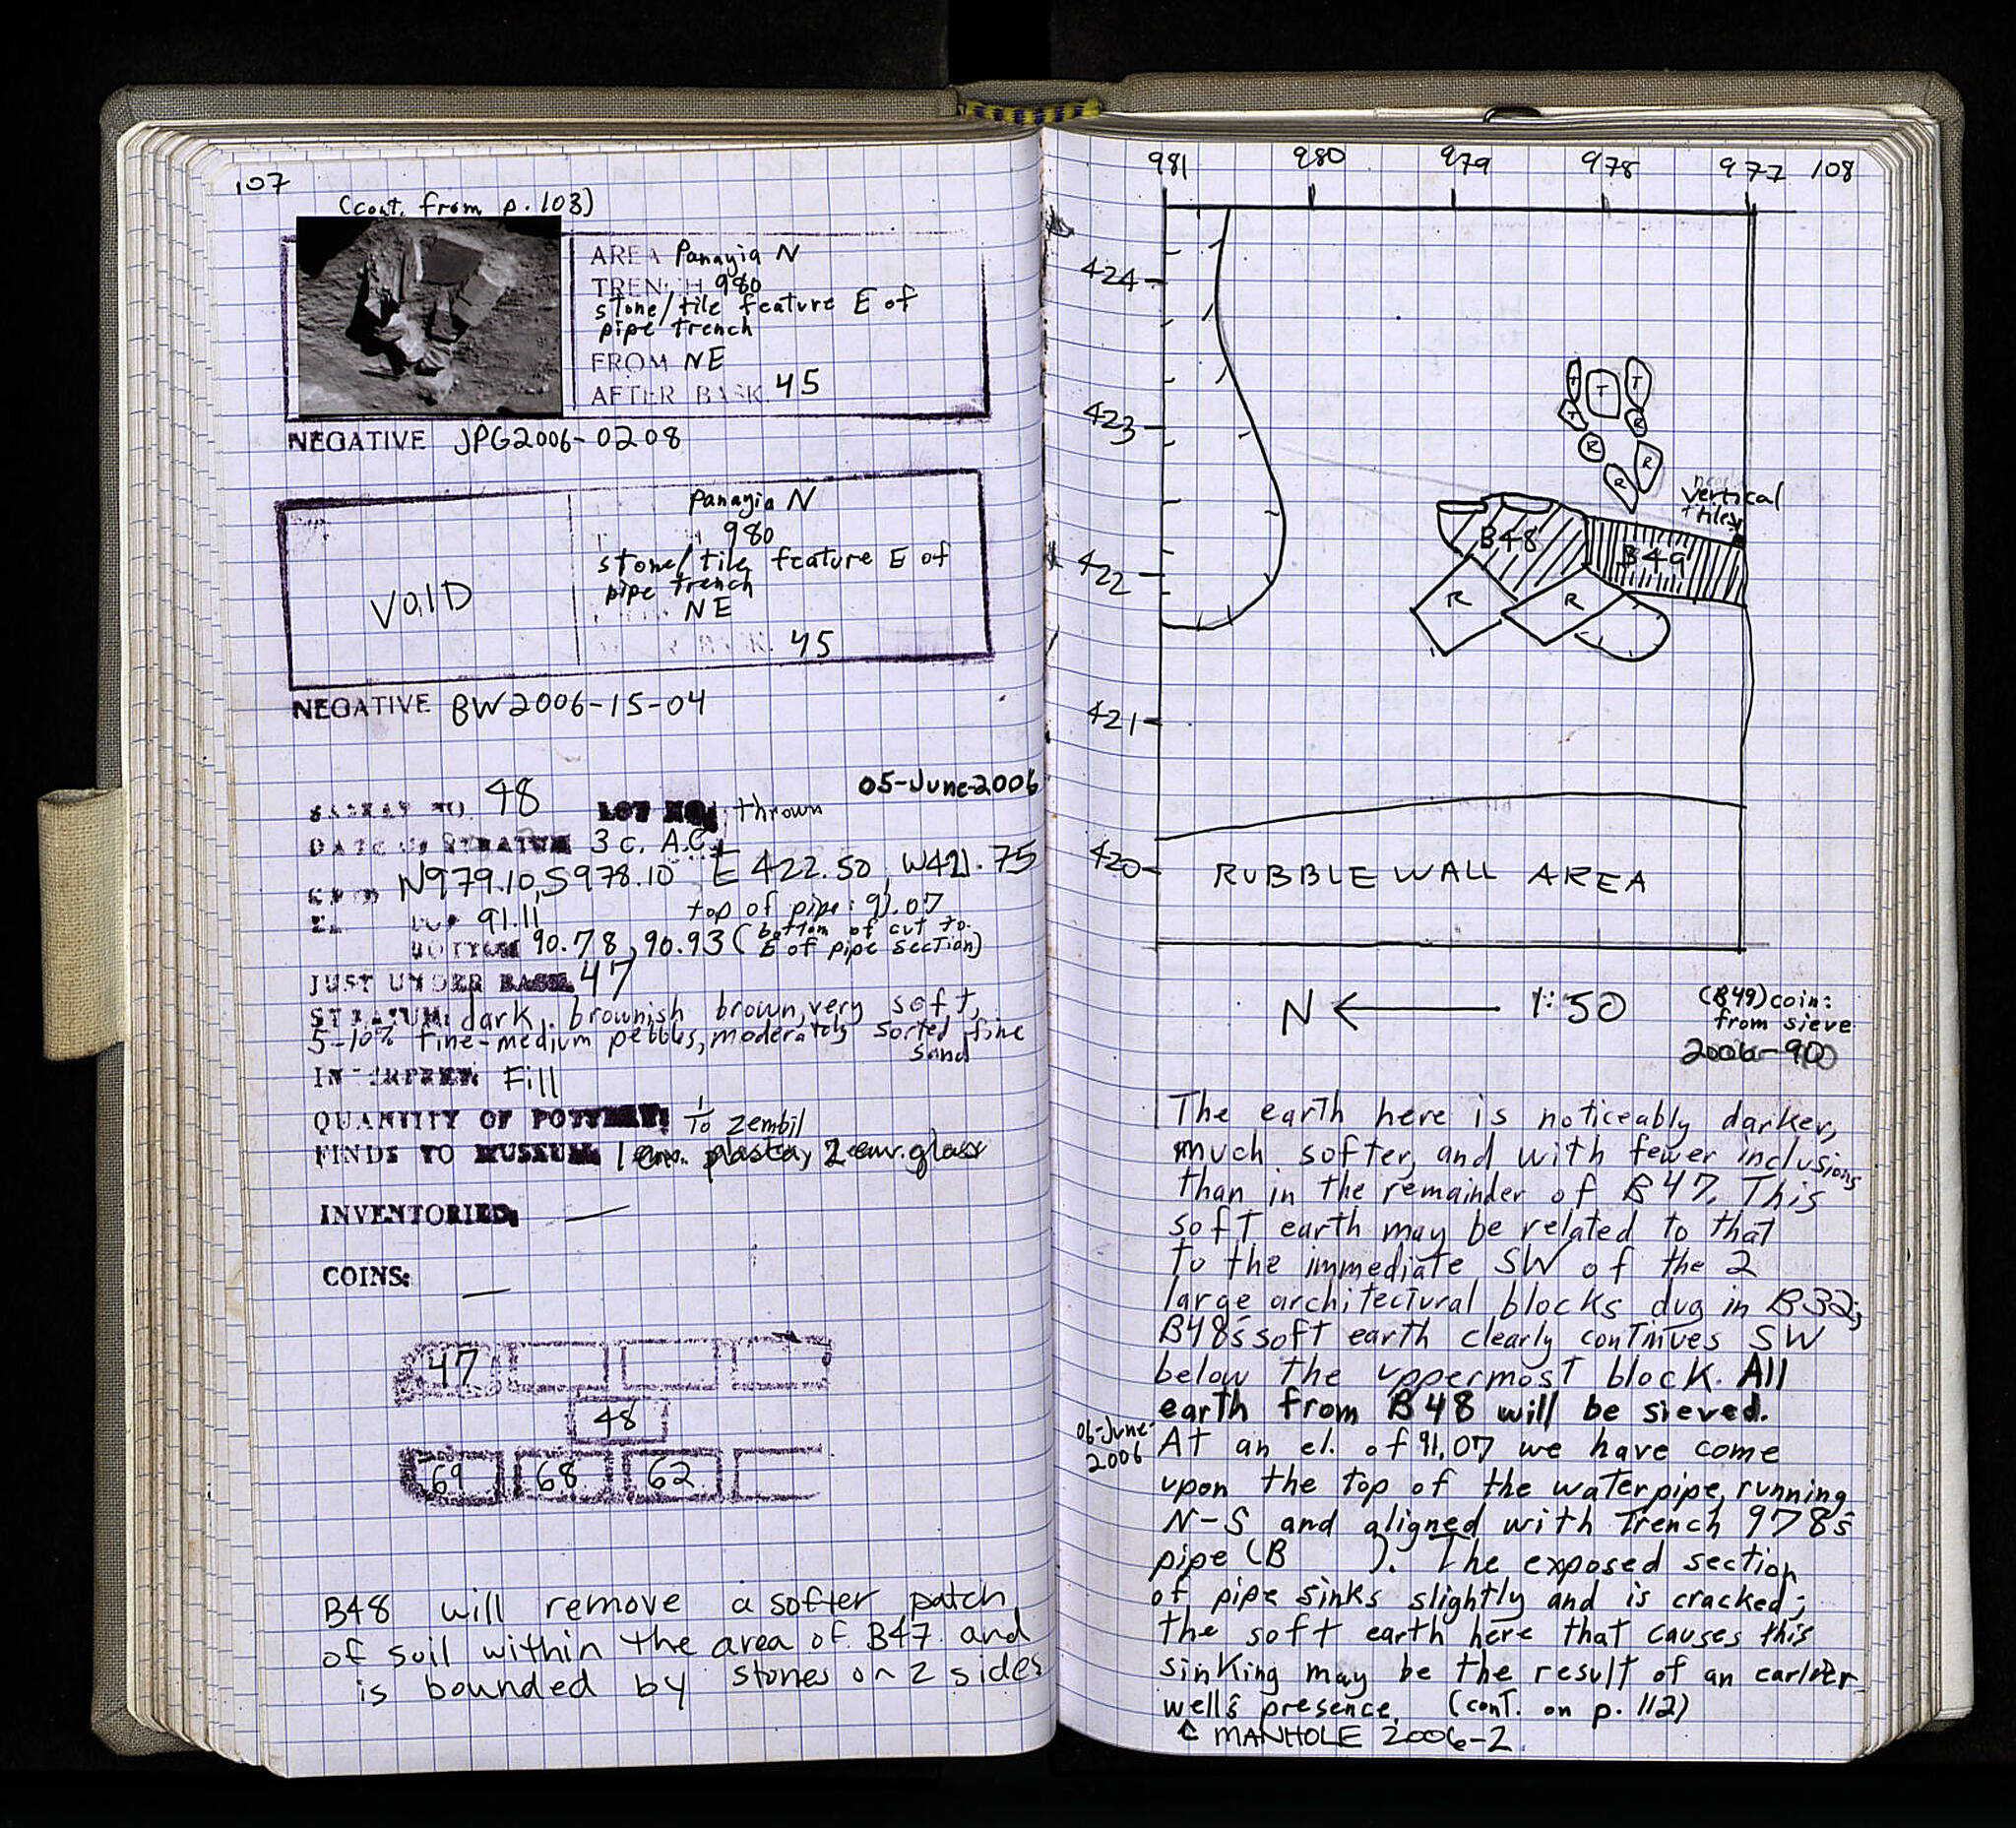 107
(cont. from p. 103)
AREA Panayia N
TRENCH 980
stone/tile feature E of
pipe trench
FROM NE
AFTER BASK. 45
NEGATIVE JPG2006-0208
Panayia N
980
stone/tile feature E of
pipe trench
NE
VOID
45
NEGATIVE BW2006-15-04
05-June-2006
BASKET NO. 48 LOT NO: thrown
DATE OF STRATUM 3 c. A.C.
GRID N979.10, S978.10 E 422.50, W421.75
EL. TOP 91.11 top of pipe: 91.07
BOTTOM 90.78, 90.93 (bottom of cut to
E of pipe section)
JUST UNDER BASK. 47
STRATUM: dark brownish brown, very soft,
5-10% fine-medium pebbles, moderately sorted fine
sand
INTERPRET: Fill
QUANTITY OF POTTERY: 1/10 zembil
FINDS TO MUSEUM: 1 env. plaster, 2 env. glass
INVENTORIED: —
COINS: —
47
48
69 68 62
B48 will remove a softer patch
of soil within the area of B47 and
is bounded by stones on 2 sides
981 980 979 978 977 108
424
T T T
423
T R
R
R
R
vertical
tiles
B48
B49
422
R R
421
420
RUBBLE WALL AREA
N ← 1:50
(B49) coin:
from sieve
2006-90
The earth here is noticeably darker,
much softer, and with fewer inclusions
than in the remainder of B47. This
soft earth may be related to that
to the immediate SW of the 2
large architectural blocks dug in B32;
B48's soft earth clearly continues SW
below the uppermost block. All
earth from B48 will be sieved.
06-June-
2006
At an el. of 91.07 we have come
upon the top of the waterpipe, running
N-S and aligned with Trench 978's
pipe (B ). The exposed section
of pipe sinks slightly and is cracked;
the soft earth here that causes this
sinking may be the result of an earlier
well's presence. (cont. on p. 112)
↑ MANHOLE 2006-2